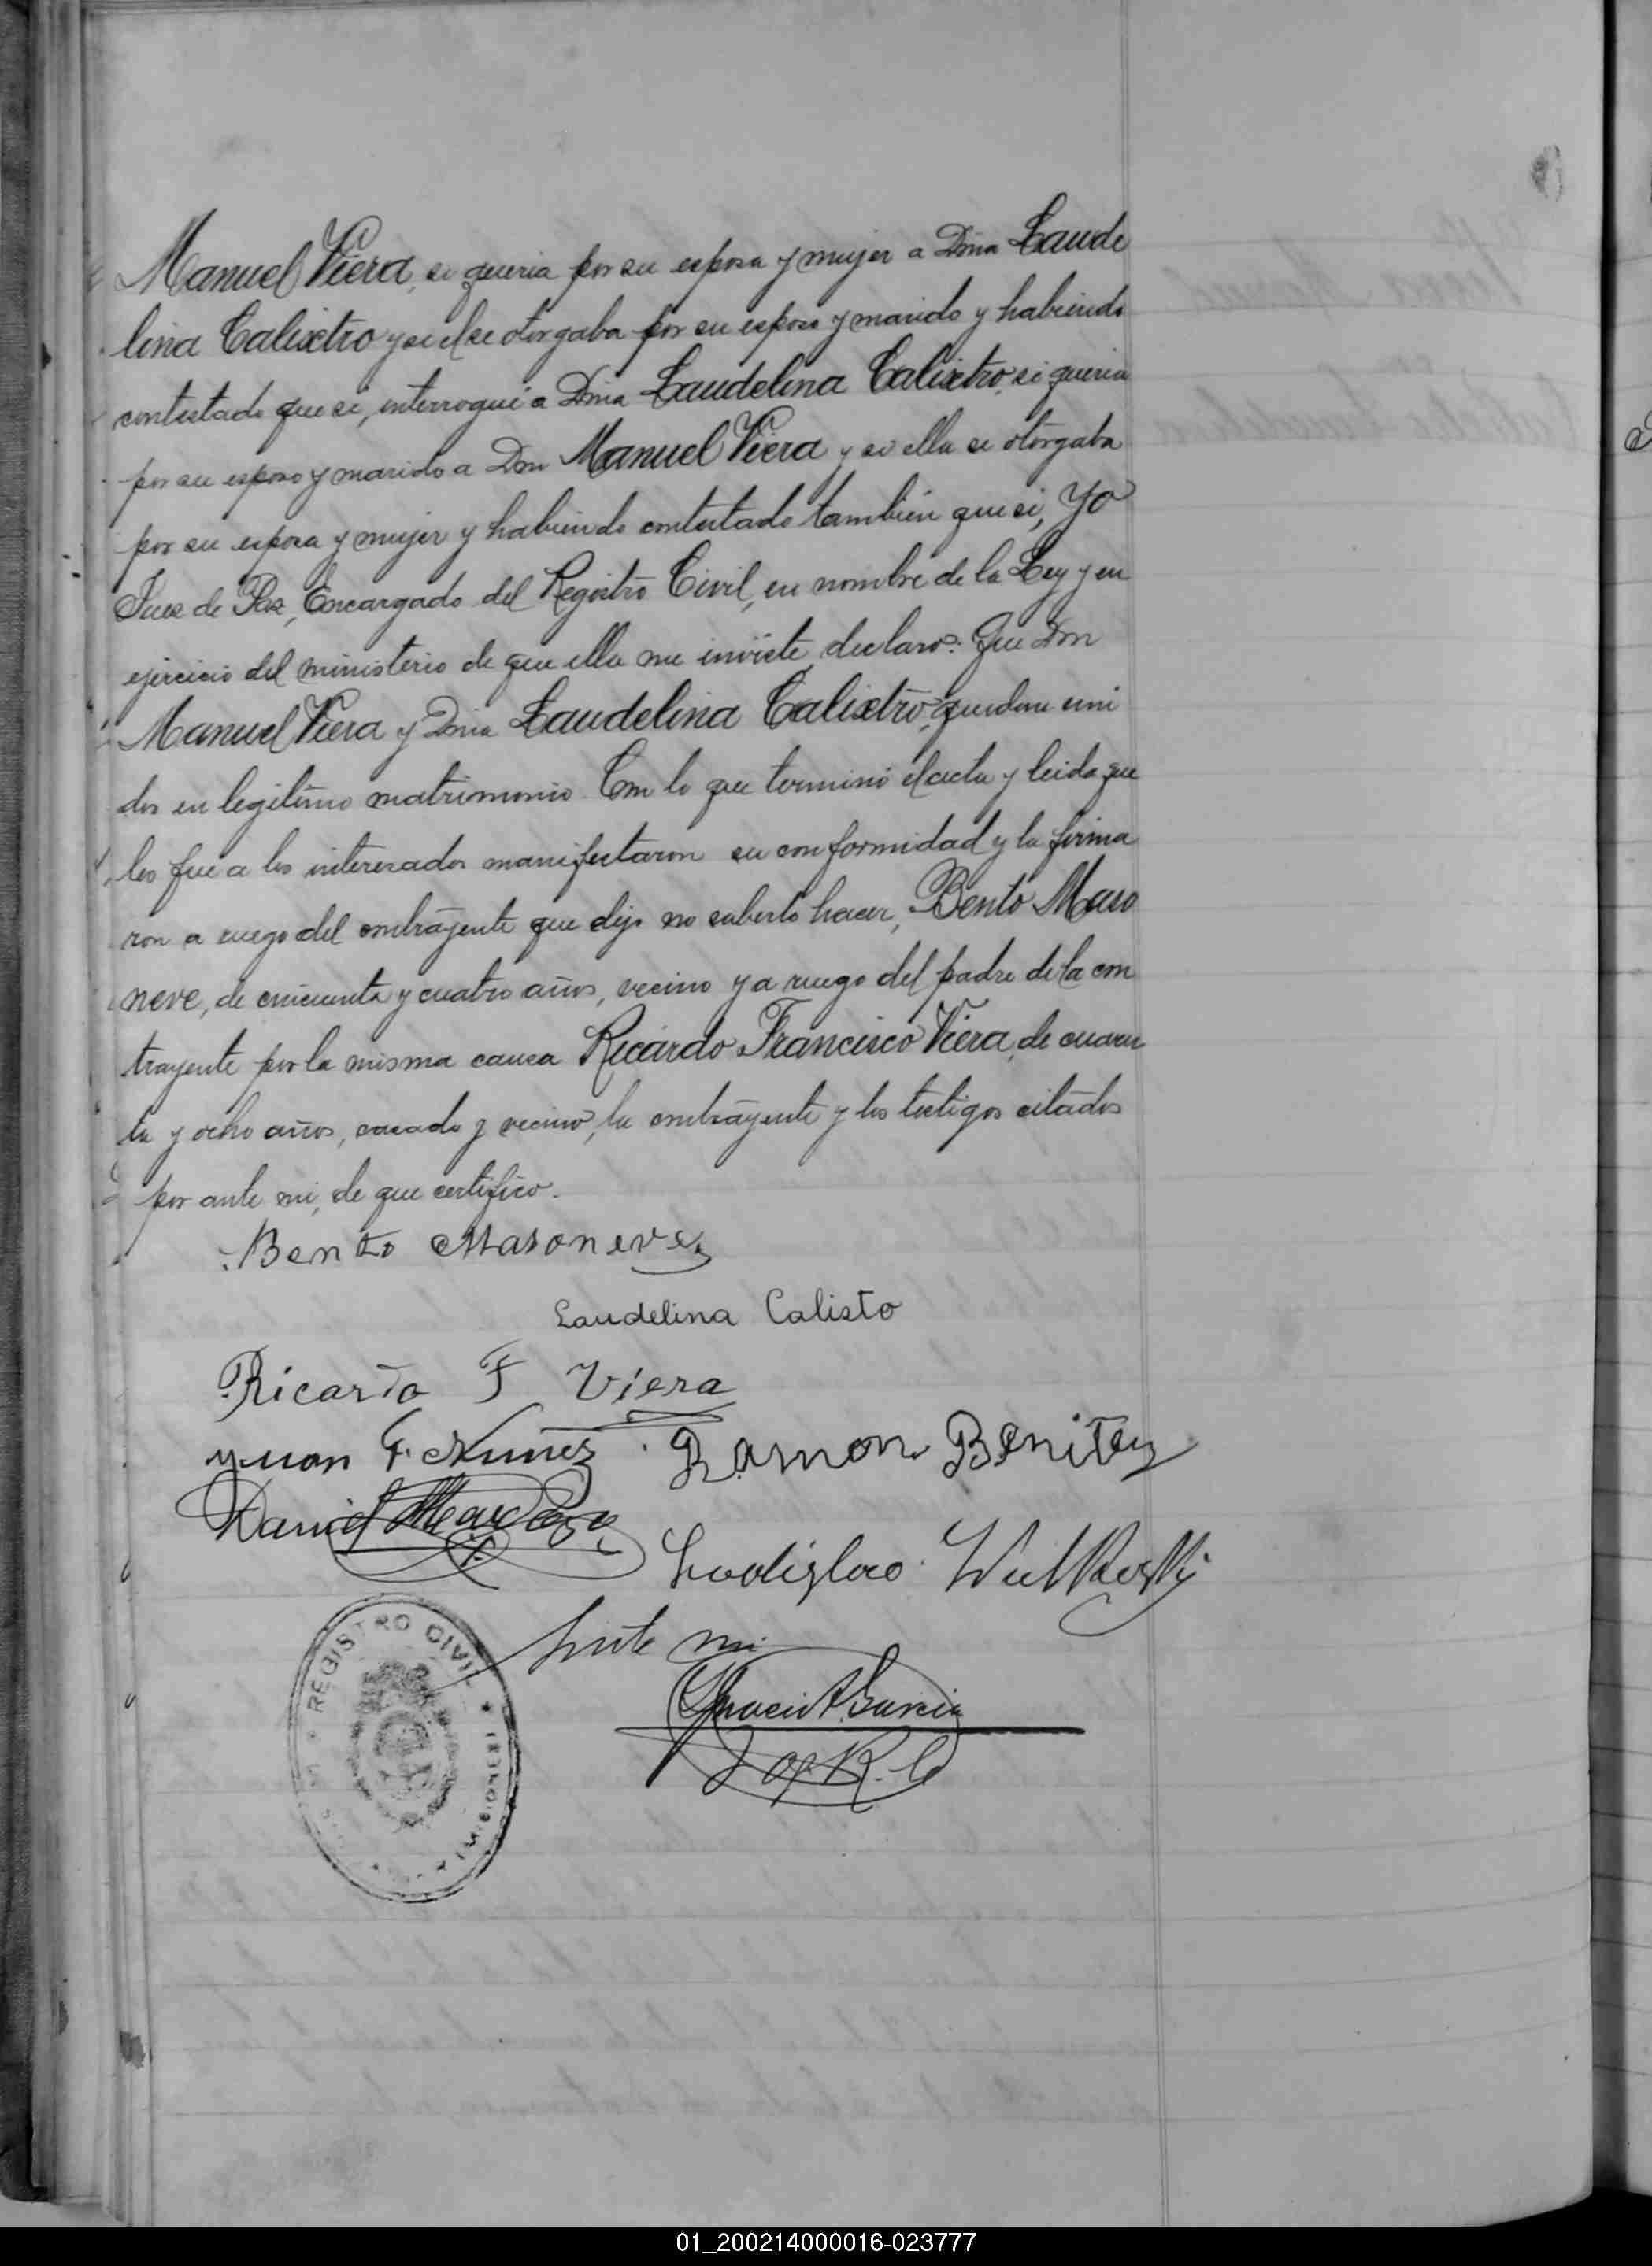 Manuel Viera, si queria por su esposa y mujer a Doña Laude
lina Calixtro y si el se otorgaba por su esposo y marido y habiendo
contestado que si, interrogué a Doña Laudelina Calixtro, si queria
por su esposo y marido a Don Manuel Viera y si ella se otorgaba
por su esposa y mujer y habiendo contestado tambien que si, Yo
Juez de Paz, Encargado del Registro Civil, en nombre de la Ley y en
ejercicio del ministerio de que ella me inviste, declaro: Que Don
Manuel Viera y Doña Laudelina Calixtro, quedan uni
dos en legitimo matrimonio. Con lo que terminó el acta y leida que
les fue a los interesados manifestaron su conformidad y la firma
ron a ruego del contrayente que dijo no saberlo hacer, Bento Maso
neve, de cincuenta y cuatro años, vecino y a ruego del padre de la con
trayente por la misma causa Ricardo Francisco Viera, de cuaren
ta y ocho años, casado y vecino, la contrayente y los testigos citados
por ante mi, de que certifico.
Bento Masoneve
Laudelina Calisto
Ricardo F Viera
Juan F. Nuñez Ramon Benitez
Daniel
Ladislao
Ante mi
Garcia
REGISTRO CIVIL
MISIONES
01_200214000016-023777